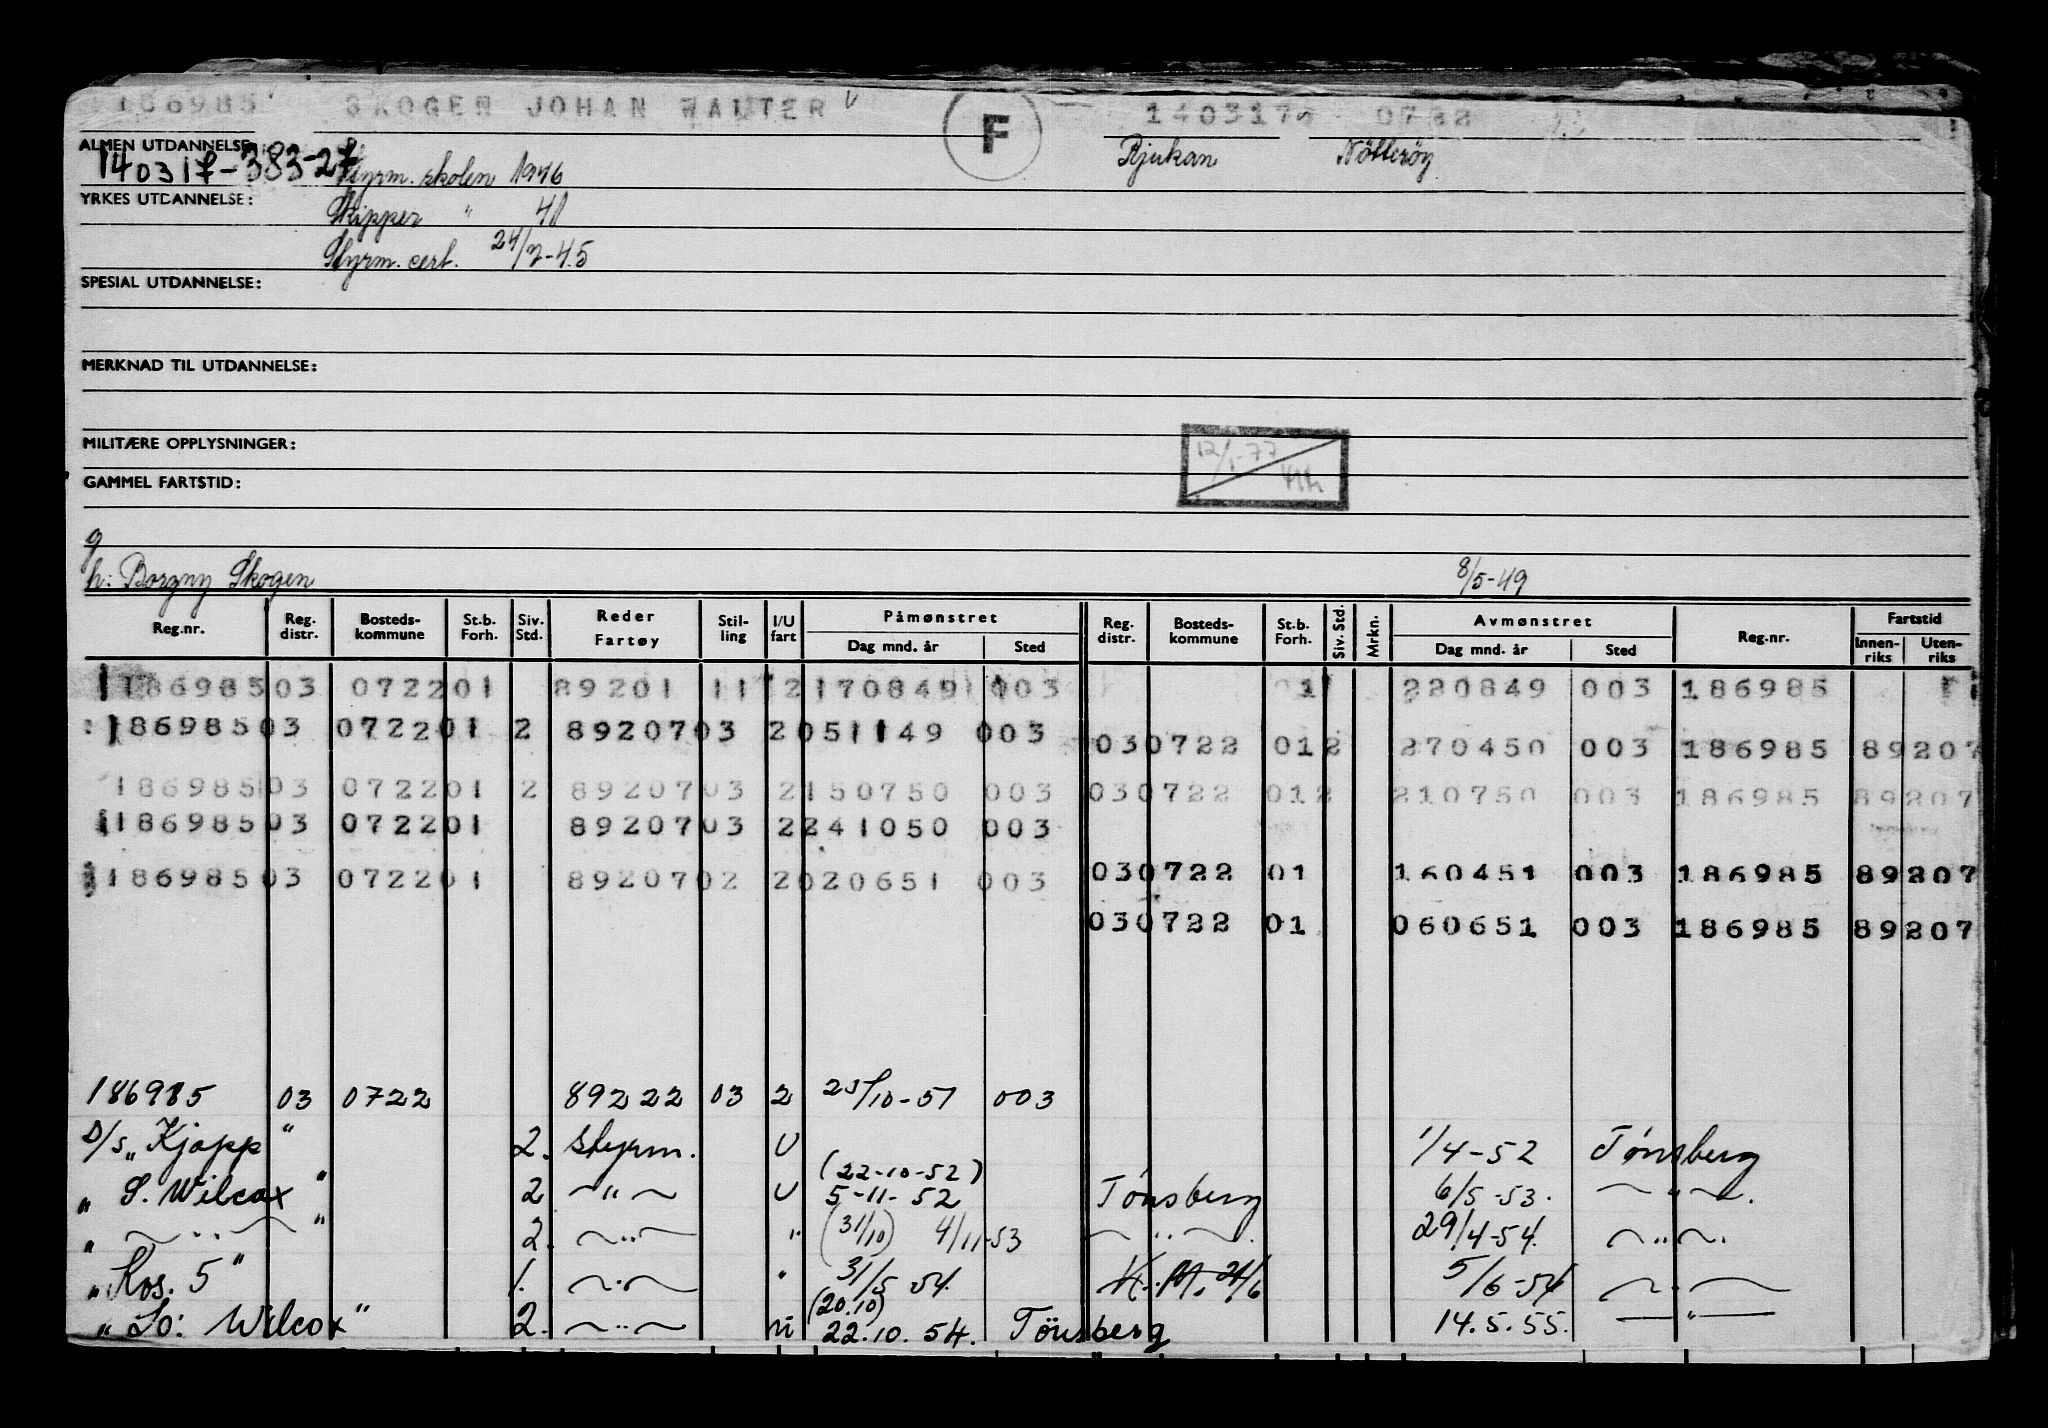 186985 SKOGEN JOHAN WALTER F 140317 0722
ALMEN UTDANNELSE: Rjukan Nötteröy
140317-383-27 Styrm. skolen 1946
YRKES UTDANNELSE: Skipper " 48
Styrm. cert. 24/2-45
SPESIAL UTDANNELSE:
MERKNAD TIL UTDANNELSE:
MILITÆRE OPPLYSNINGER: 12/1-77
GAMMEL FARTSTID:
g
h: Borgny Skogen 8/5-49
Reg.nr. Reg. distr. Bosteds-kommune St.b. Forh. Siv. Std. Reder Fartøy Stil-ling I/U fart Påmønstret Dag mnd. år Sted Reg. distr. Bosteds-kommune St.b. Forh. Siv. Std. Mrkn. Avmønstret Dag mnd. år Sted Reg.nr. Fartstid Innen-riks Uten-riks
186985 03 0722 01 89201 11 2 170849 003 1 220849 003 186985
186985 03 0722 01 2 89207 03 2 051149 003
03 0722 01 2 270450 003 186985 89207
186985 03 0722 01 2 89207 03 2 150750 003 03 0722 01 2 210750 003 186985 89207
186985 03 0722 01 89207 03 2 241050 003
03 0722 01 160451 003 186985 89207
186985 03 0722 01 89207 02 2 020651 003
03 0722 01 060651 003 186985 89207
186985 03 0722 89222 03 2 25/10-51 003
D/s "Kjapp" 2. styrm. U 1/4-52 Tønsberg
(22-10-52)
" S. Wilcox " 2 ~"~ U 5-11-52 Tønsberg 6/5-53. ~"~.
" ~..~ " 2. ~..~ " (31/10) 4/11-53 ~..~. 29/4-54. ~..~.
"Kos. 5" 1. ~.~ " 31/5 54. 24/6 5/6-54 ~.~
(20.10)
" So: Wilcox" 2. ~..~ 22.10.54. Tönsberg 14.5.55. —"—